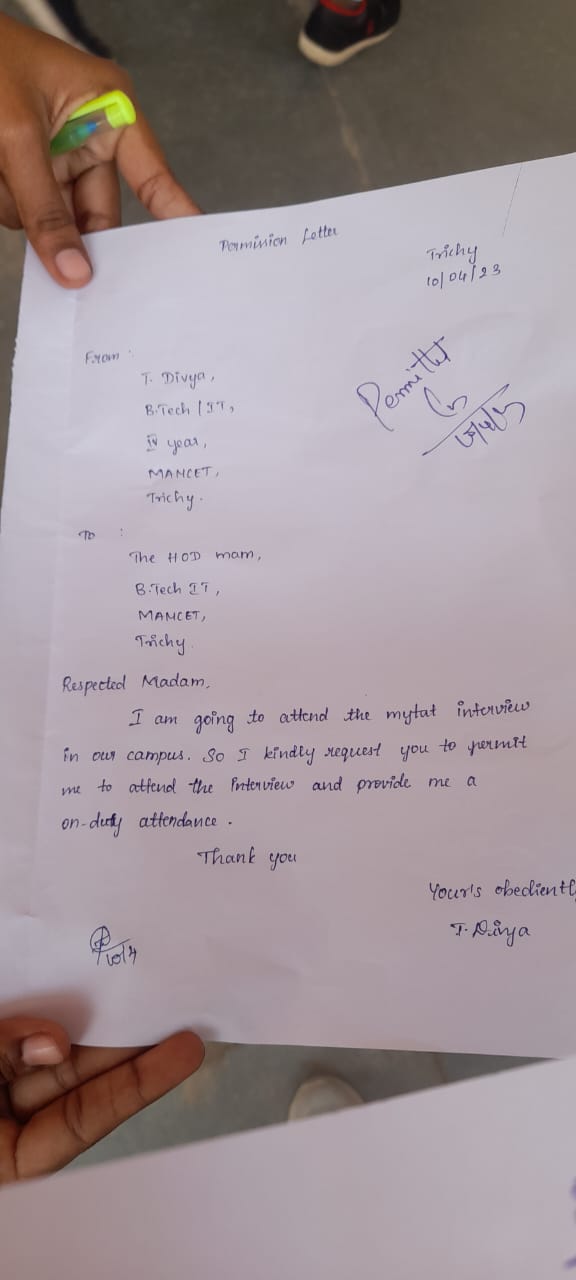 Permission Letter
Trichy
10/04/23
Permitted
From :
T. Divya,
B.Tech / IT,
IV year,
MANCET,
Trichy.
To :
The HOD mam,
B.Tech IT,
MANCET,
Trichy.
Respected Madam,
I am going to attend the mytat interview
in our campus. So I kindly request you to permit
me to attend the interview and provide me a
on-duty attendance.
Thank you
Your's obediently
T. Divya
10/4